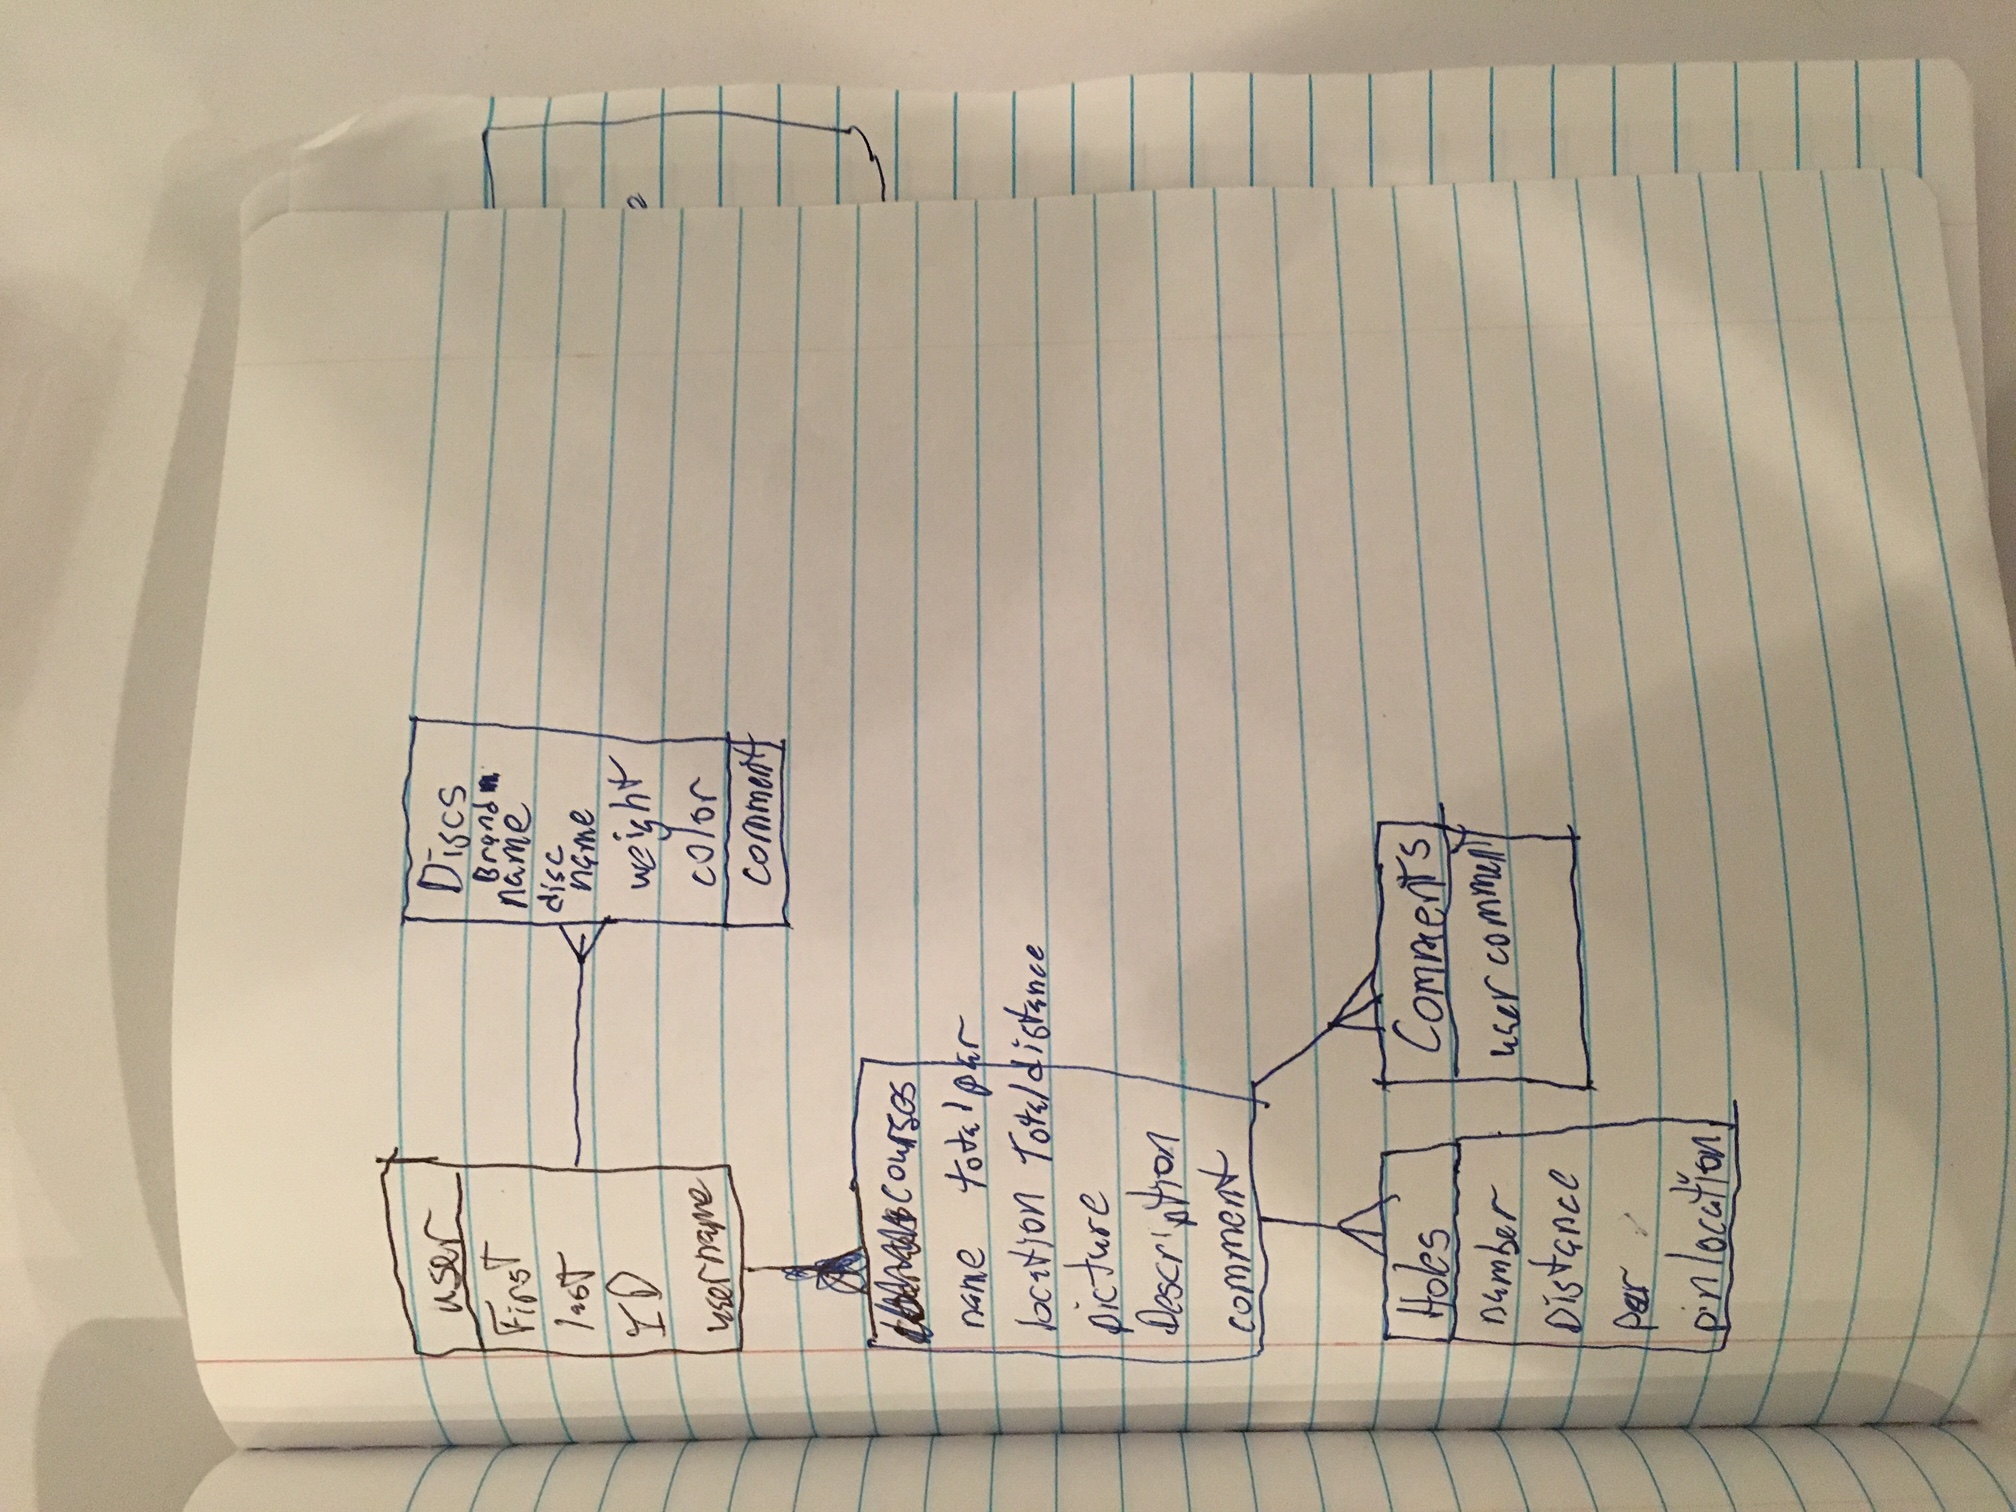 user
First
last
ID
username
Discs
Brand
name
disc
name
weight
color
comment
courses
name total par
location Total distance
picture
Description
comment
Holes
number
Distance
par
pin location
Comments
user comment